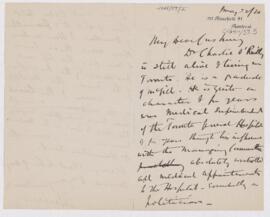 My dear Cushing
Dr Charlie O'Reilly
is still alive & living in
Toronto. He is a graduate
of McGill. He is quite a
character & for years
was Medical Superintendent
of the Toronto General Hospital
& for years through his influence
with the Managing Committee
absolutely controlled
all medical appointments
to the Hospital.
politicians